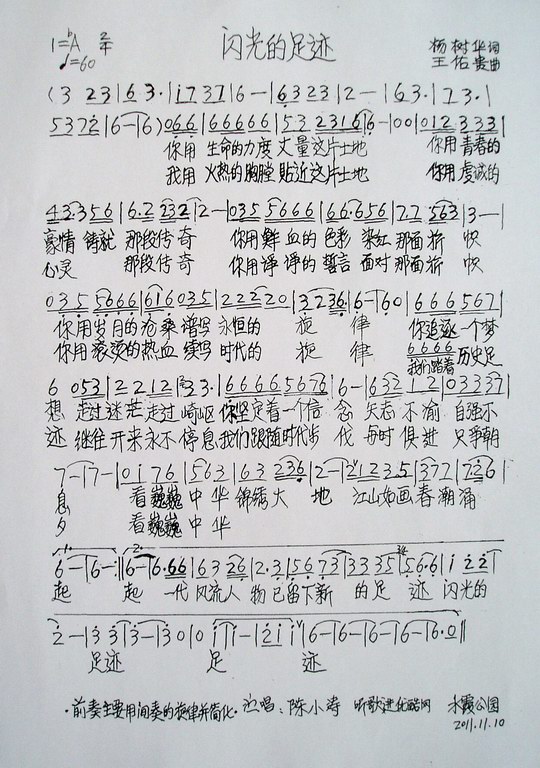 1=♭A 2/4 闪光的足迹 杨树华词
♩=60 王佑贵曲
(3 23|63·|1737|6-|6323|2-|63·|73·|
5372|6-|6-)066|66666|53 2316|6-|00|012 333|
你用 生命的力度 丈量这片土地 你用 青春的
我用 火热的胸膛 贴近这片土地 你用 虔诚的
43·356|6·2 232|2-|035 5666|66·656|72 563|3-|
豪情 铸就 那段传奇 你用鲜血的色彩 染红 那面旗帜
心灵 那段传奇 你用谆谆的誓言 面对 那面旗帜
035 5666|616035|22220|3236|6-|60|666567|
你用岁月的沧桑 谱写 永恒的 旋律 你追逐一个梦
你用滚烫的热血 续写 时代的 旋律 6666
我们踏着 历史足
6 053|22 12|33·|6666 5676|6-|632 12|03337|
想 走过迷茫 走过崎岖 你坚定着一个信念 矢志不渝 自强不
迹 继往开来 永不停息 我们跟随时代步伐 与时俱进 只争朝
7-|7-|0176|563|63 236|2-|21235|372|726|
息 看巍巍中华 锦绣大地 江山如画 春潮涌
夕 看巍巍中华
6-|6-:|6-|6·66|6326|2·3|5673|3335|56·6|122|
起 起 一代风流人物 已留下新的足迹 闪光的
2-|33|3-|30|01|1-|211|6-|6-|6-|6-|6·0‖
足迹 足 迹
·前奏主要用间奏的旋律并简化· 演唱：陈小涛 听歌进优酷网 水霞公园
2011.11.10